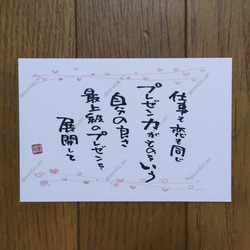 仕事も恋も同じ
プレゼン力がものをいう
自分の良さ
最上級のプレゼンを
展開して